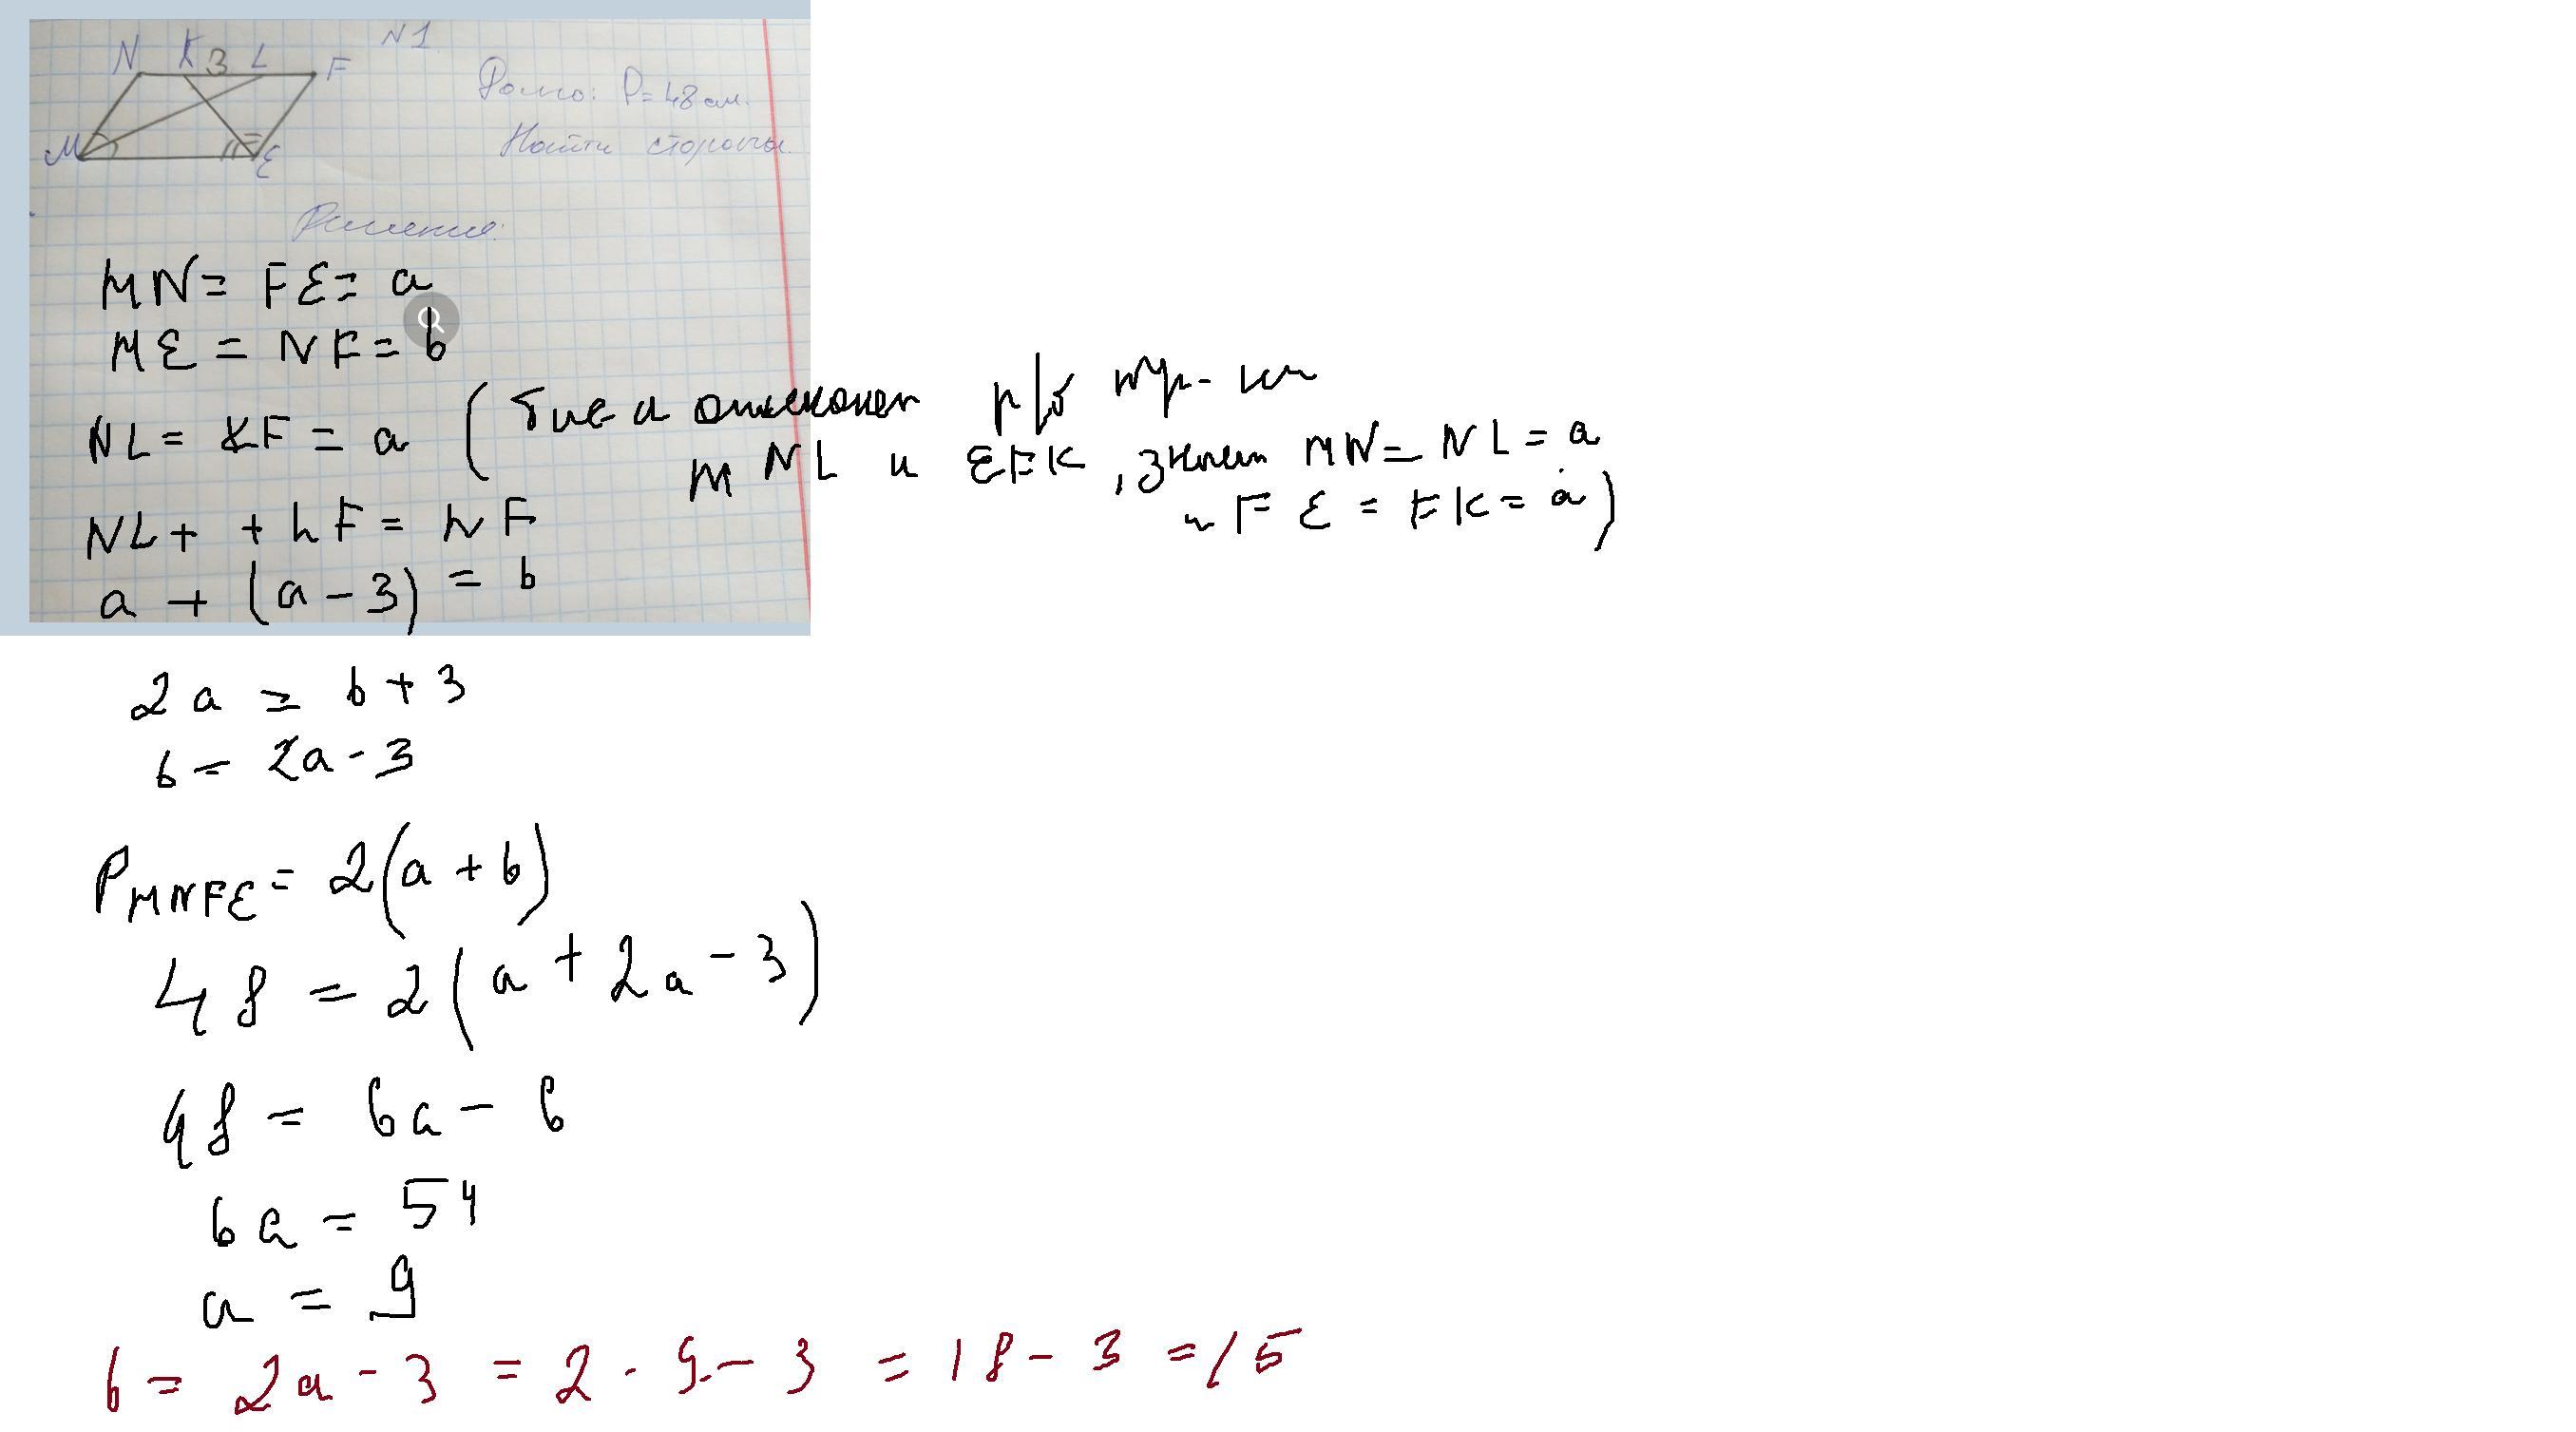 N1
N K 3 L F
M E
Дано: P=48см.
Найти стороны.
Решение:
MN= FE= a
ME = NF= b
NL= KF = a (бис-а отсекает р/б тр-ки
MNL и EFK, значит MN= NL= a
и FE = FK= a)
NL+ + LF= NF
a + (a-3) = b
2a = b+3
b= 2a-3
PMNFE= 2(a+b)
48 = 2(a+2a-3)
48 = 6a-6
6a = 54
a = 9
b= 2a-3 = 2·9-3 = 18-3 =15